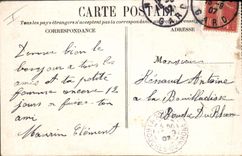 CARTE POSTALE
Tous les pays étrangers n'acceptent pas
CORRESPONDANCE
GARD
GARD
07
Donne bien le
bonjour a tous les
amis et ta petite
femme encore 12
jours a faire ton
ami
Maurin Clément
Monsieur
Hénaud Antoine
a la Bouilladisse
Bouche du Rhône